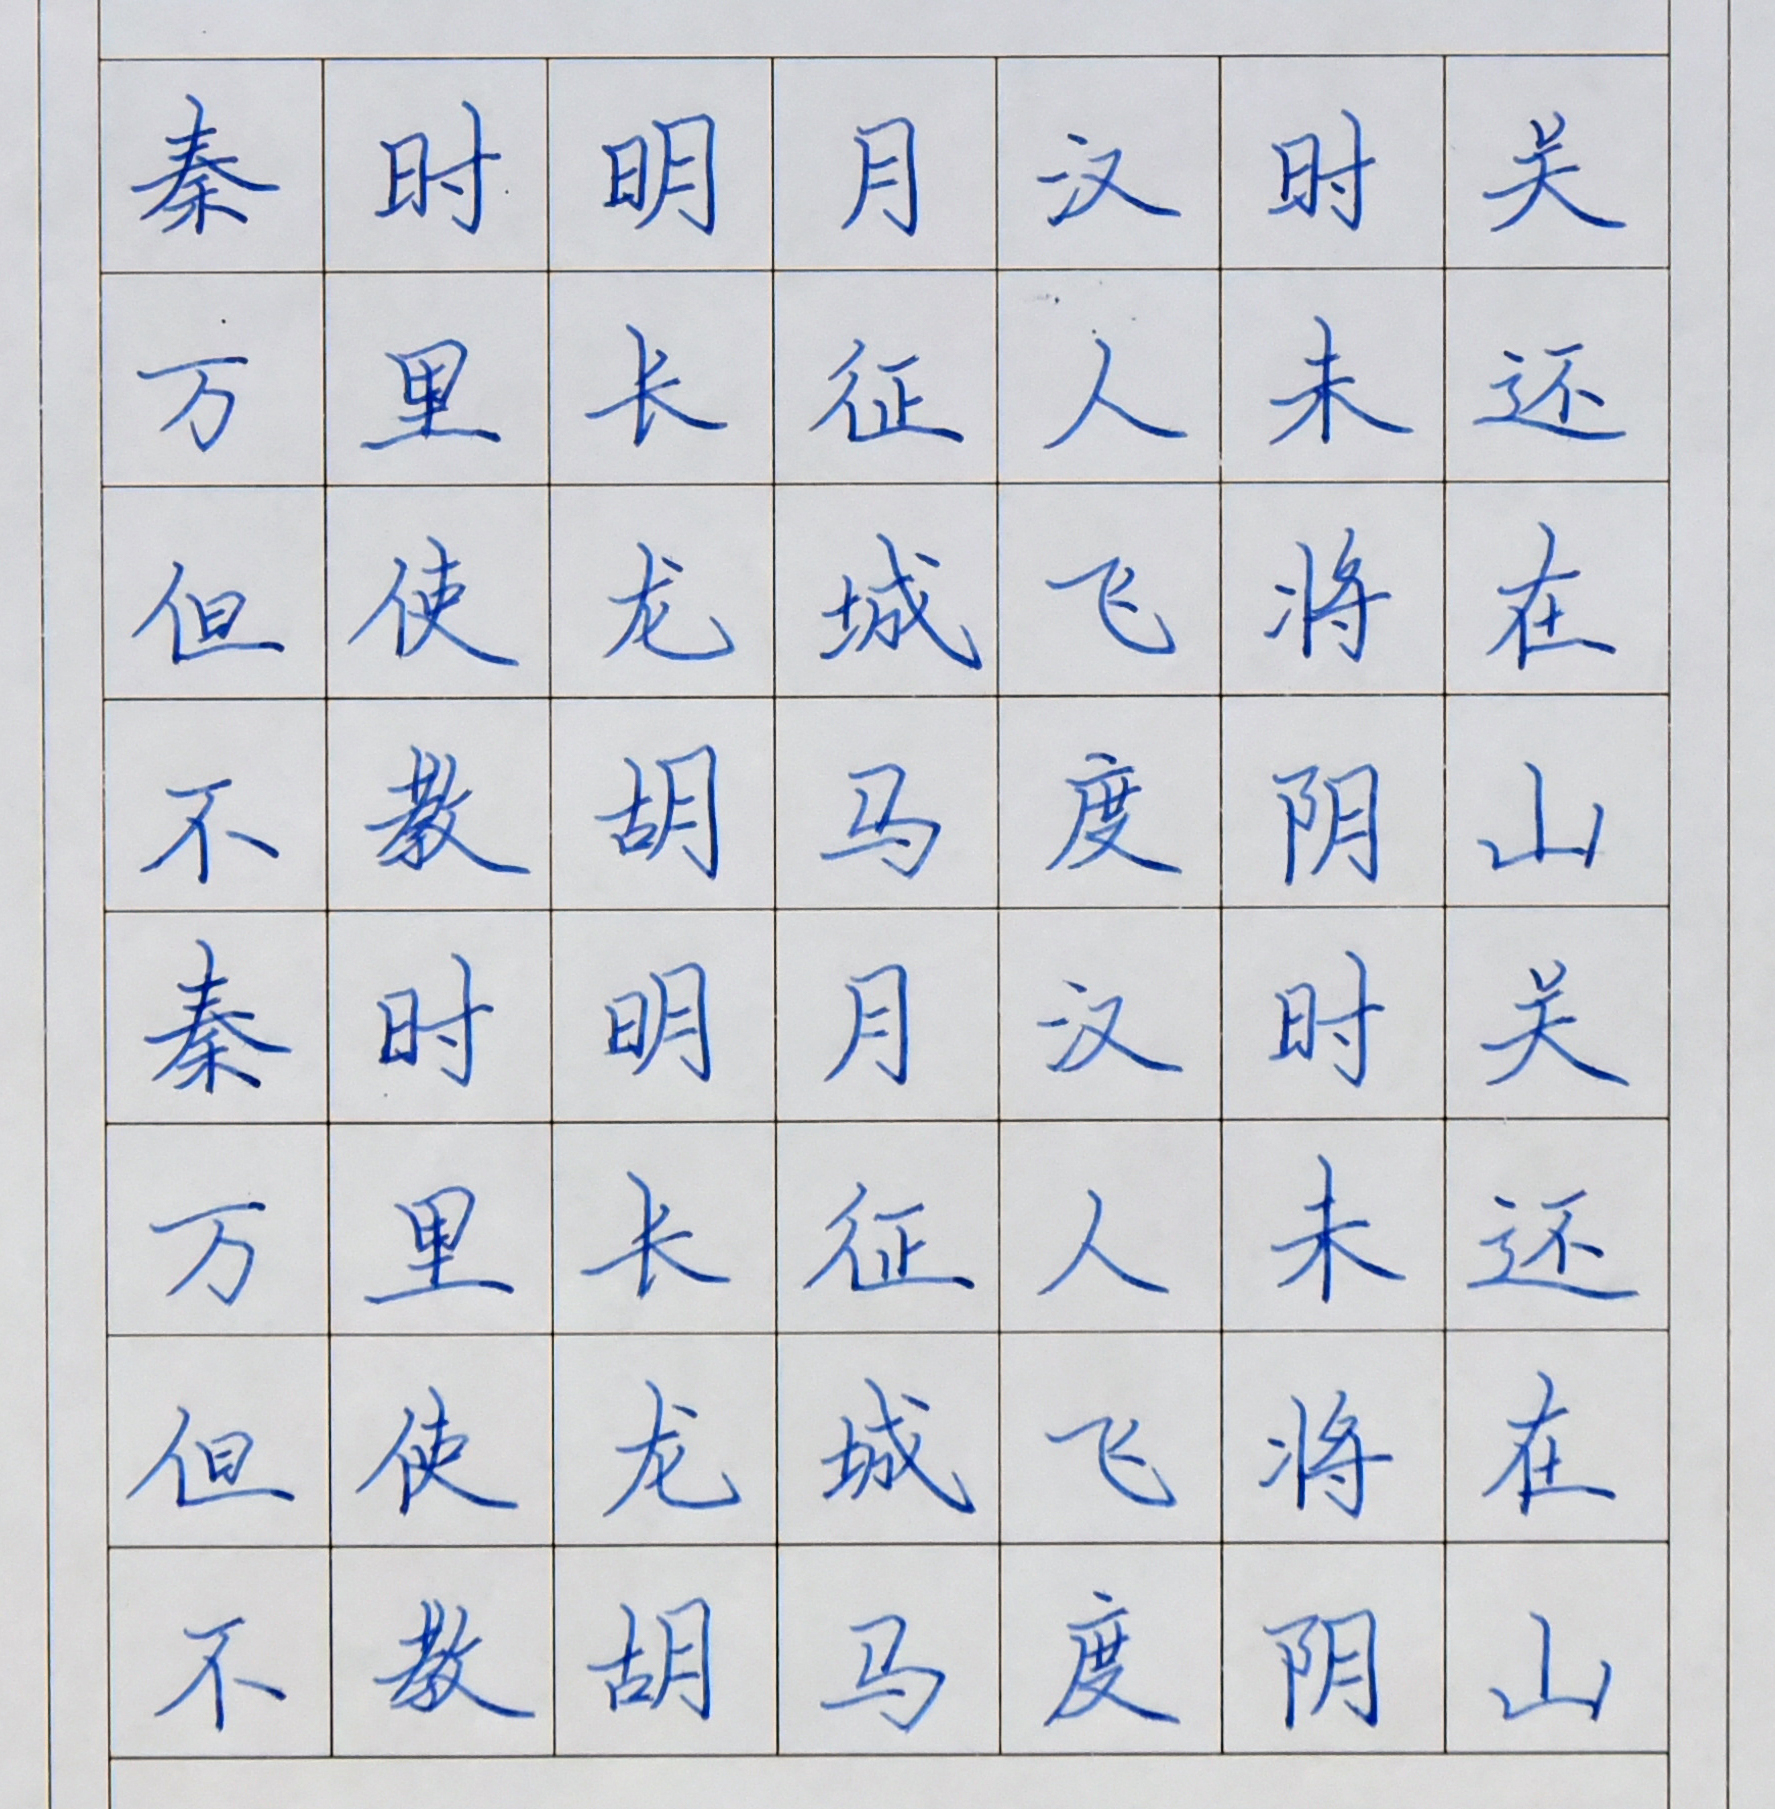 秦时明月汉时关
万里长征人未还
但使龙城飞将在
不教胡马度阴山
秦时明月汉时关
万里长征人未还
但使龙城飞将在
不教胡马度阴山